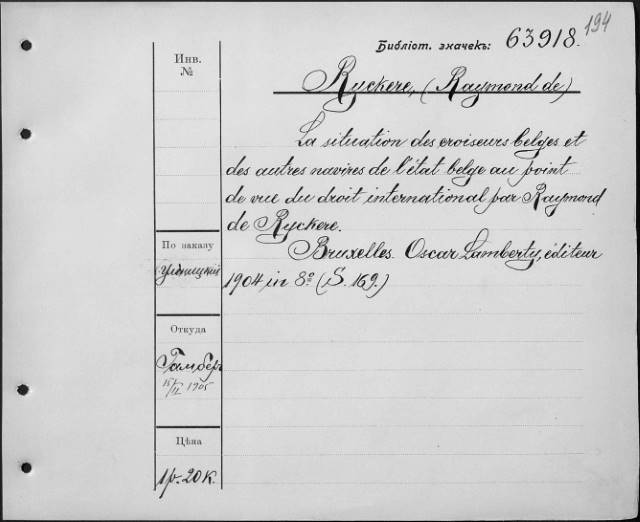 194
Библіот. значекъ: 63918.
Инв.
№
Ryckere, (Raymond de)
La situation des croiseurs belges et
des autres navires de l'état belge au point
de vue du droit international par Raymond
de Ryckere.
Bruxelles. Oscar Lamberty, éditeur
1904 in 8º (S. 169.)
По заказу
Откуда
Гамбер
15/II 1905
Цѣна
1р. 20к.